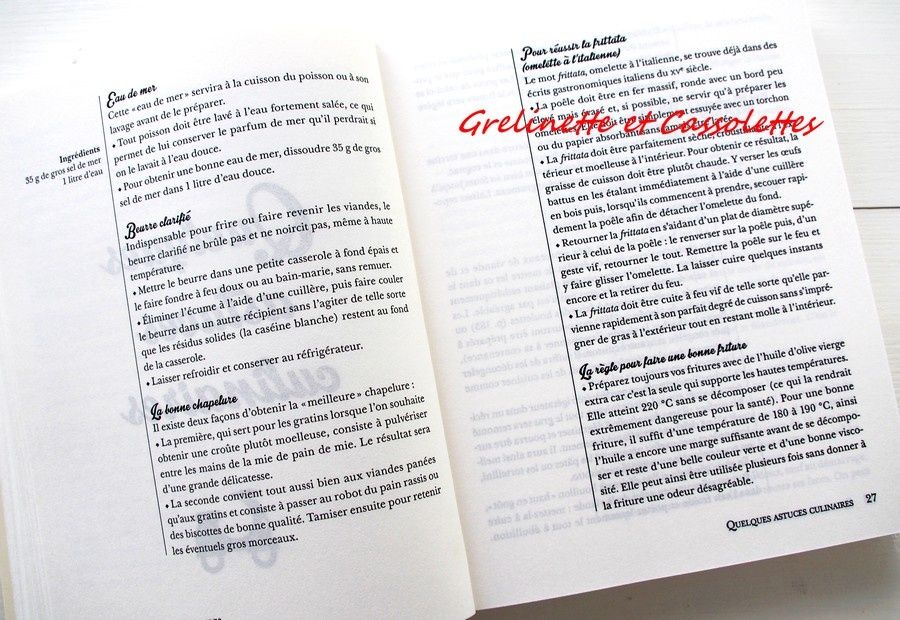 Eau de mer
Cette « eau de mer » servira à la cuisson du poisson ou à son
lavage avant de le préparer.
• Tout poisson doit être lavé à l'eau fortement salée, ce qui
permet de lui conserver le parfum de mer qu'il perdrait si
on le lavait à l'eau douce.
• Pour obtenir une bonne eau de mer, dissoudre 35 g de gros
sel de mer dans 1 litre d'eau douce.
Ingrédients
35 g de gros sel de mer
1 litre d'eau
Beurre clarifié
Indispensable pour frire ou faire revenir les viandes, le
beurre clarifié ne brûle pas et ne noircit pas, même à haute
température.
• Mettre le beurre dans une petite casserole à fond épais et
le faire fondre à feu doux ou au bain-marie, sans remuer.
• Éliminer l'écume à l'aide d'une cuillère, puis faire couler
le beurre dans un autre récipient sans l'agiter de telle sorte
que les résidus solides (la caséine blanche) restent au fond
de la casserole.
• Laisser refroidir et conserver au réfrigérateur.
La bonne chapelure
Il existe deux façons d'obtenir la « meilleure » chapelure :
• La première, qui sert pour les gratins lorsque l'on souhaite
obtenir une croûte plutôt moelleuse, consiste à pulvériser
entre les mains de la mie de pain de mie. Le résultat sera
d'une grande délicatesse.
• La seconde convient tout aussi bien aux viandes panées
qu'aux gratins et consiste à passer au robot du pain rassis ou
des biscottes de bonne qualité. Tamiser ensuite pour retenir
les éventuels gros morceaux.
Pour réussir la frittata
(omelette à l'italienne)
Le mot frittata, omelette à l'italienne, se trouve déjà dans des
écrits gastronomiques italiens du XVe siècle.
• La poêle doit être en fer massif, ronde avec un bord peu
élevé mais évasé et, si possible, ne servir qu'à préparer les
omelettes. Elle doit être simplement essuyée avec un torchon
ou du papier absorbant
Grelinette et Cassolettes
• La frittata doit être parfaitement sèche,
térieur et moelleuse à l'intérieur. Pour obtenir ce résultat, la
graisse de cuisson doit être plutôt chaude. Y verser les œufs
battus en les étalant immédiatement à l'aide d'une cuillère
en bois puis, lorsqu'ils commencent à prendre, secouer rapi-
dement la poêle afin de détacher l'omelette du fond.
• Retourner la frittata en s'aidant d'un plat de diamètre supé-
rieur à celui de la poêle : le renverser sur la poêle puis, d'un
geste vif, retourner le tout. Remettre la poêle sur le feu et
y faire glisser l'omelette. La laisser cuire quelques instants
encore et la retirer du feu.
• La frittata doit être cuite à feu vif de telle sorte qu'elle par-
vienne rapidement à son parfait degré de cuisson sans s'impré-
gner de gras à l'extérieur tout en restant molle à l'intérieur.
La règle pour faire une bonne friture
• Préparez toujours vos fritures avec de l'huile d'olive vierge
extra car c'est la seule qui supporte les hautes températures.
Elle atteint 220 °C sans se décomposer (ce qui la rendrait
extrêmement dangereuse pour la santé). Pour une bonne
friture, il suffit d'une température de 180 à 190 °C, ainsi
l'huile a encore une marge suffisante avant de se décompo-
ser et reste d'une belle couleur verte et d'une bonne visco-
sité. Elle peut ainsi être utilisée plusieurs fois sans donner à
la friture une odeur désagréable.
QUELQUES ASTUCES CULINAIRES 27